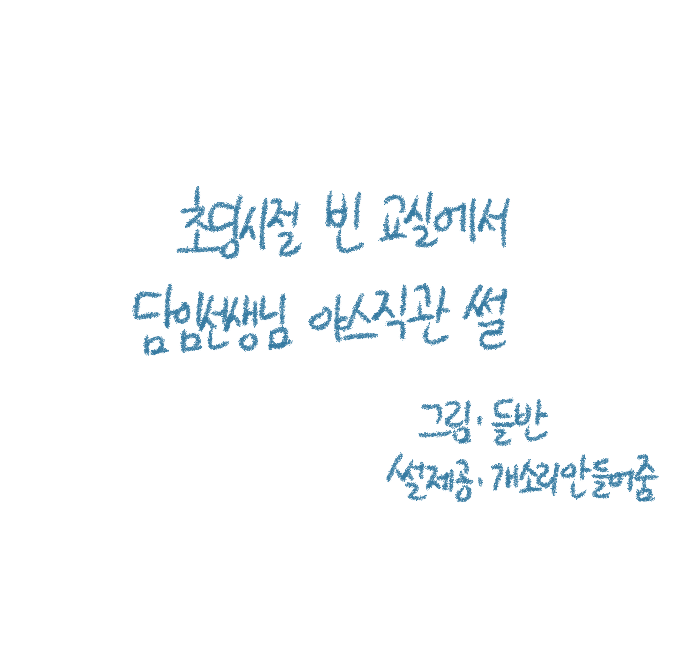 초딩시절 빈 교실에서
담임선생님 야스직관 썰
그림. 들반
썰제공. 개소리안들어줌